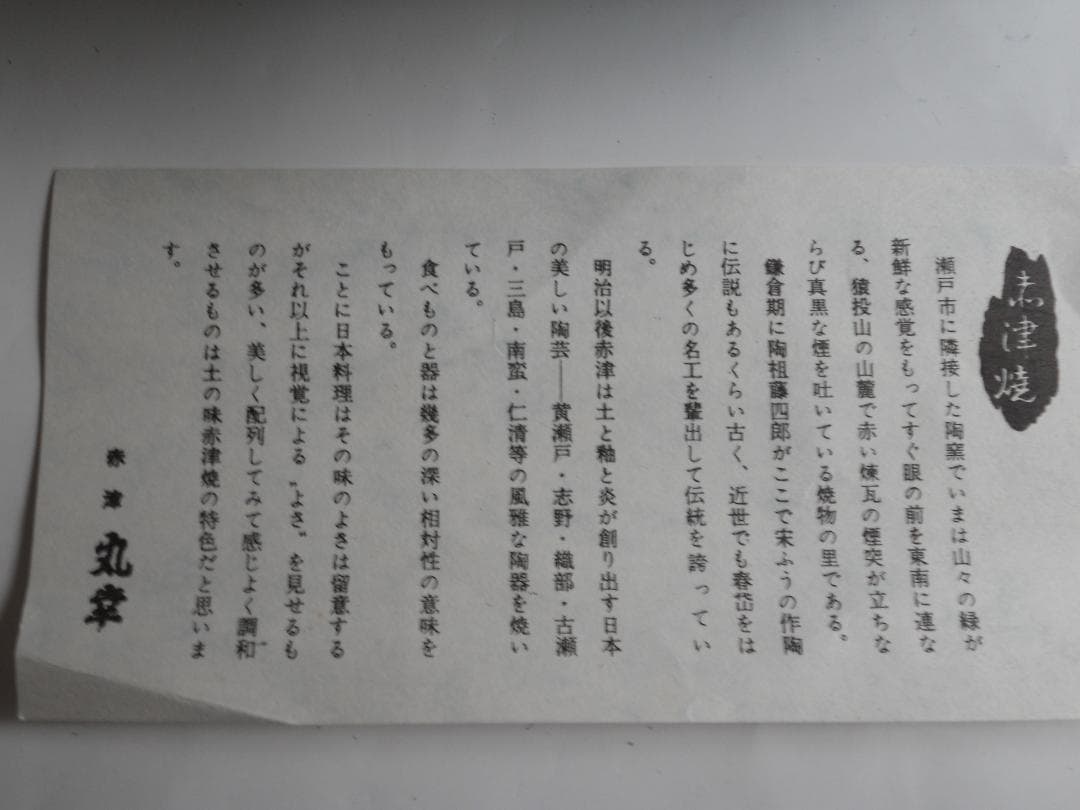 赤津焼
瀬戸市に隣接した陶窯でいまは山々の緑が
新鮮な感覚をもってすぐ眼の前を東南に連な
る、猿投山の山麓で赤い煉瓦の煙突が立ちな
らび真黒な煙を吐いている焼物の里である。
鎌倉期に陶祖藤四郎がここで宋ふうの作陶
に伝説もあるくらい古く、近世でも春岱をは
じめ多くの名工を輩出して伝統を誇ってい
る。
明治以後赤津は土と釉と炎が創り出す日本
の美しい陶芸――黄瀬戸・志野・織部・古瀬
戸・三島・南蛮・仁清等の風雅な陶器を焼い
ている。
食べものと器は幾多の深い相対性の意味を
もっている。
ことに日本料理はその味のよさは留意する
がそれ以上に視覚による〝よさ〟を見せるも
のが多い、美しく配列してみて感じよく調和
させるものは土の味赤津焼の特色だと思いま
す。
赤津 丸幸